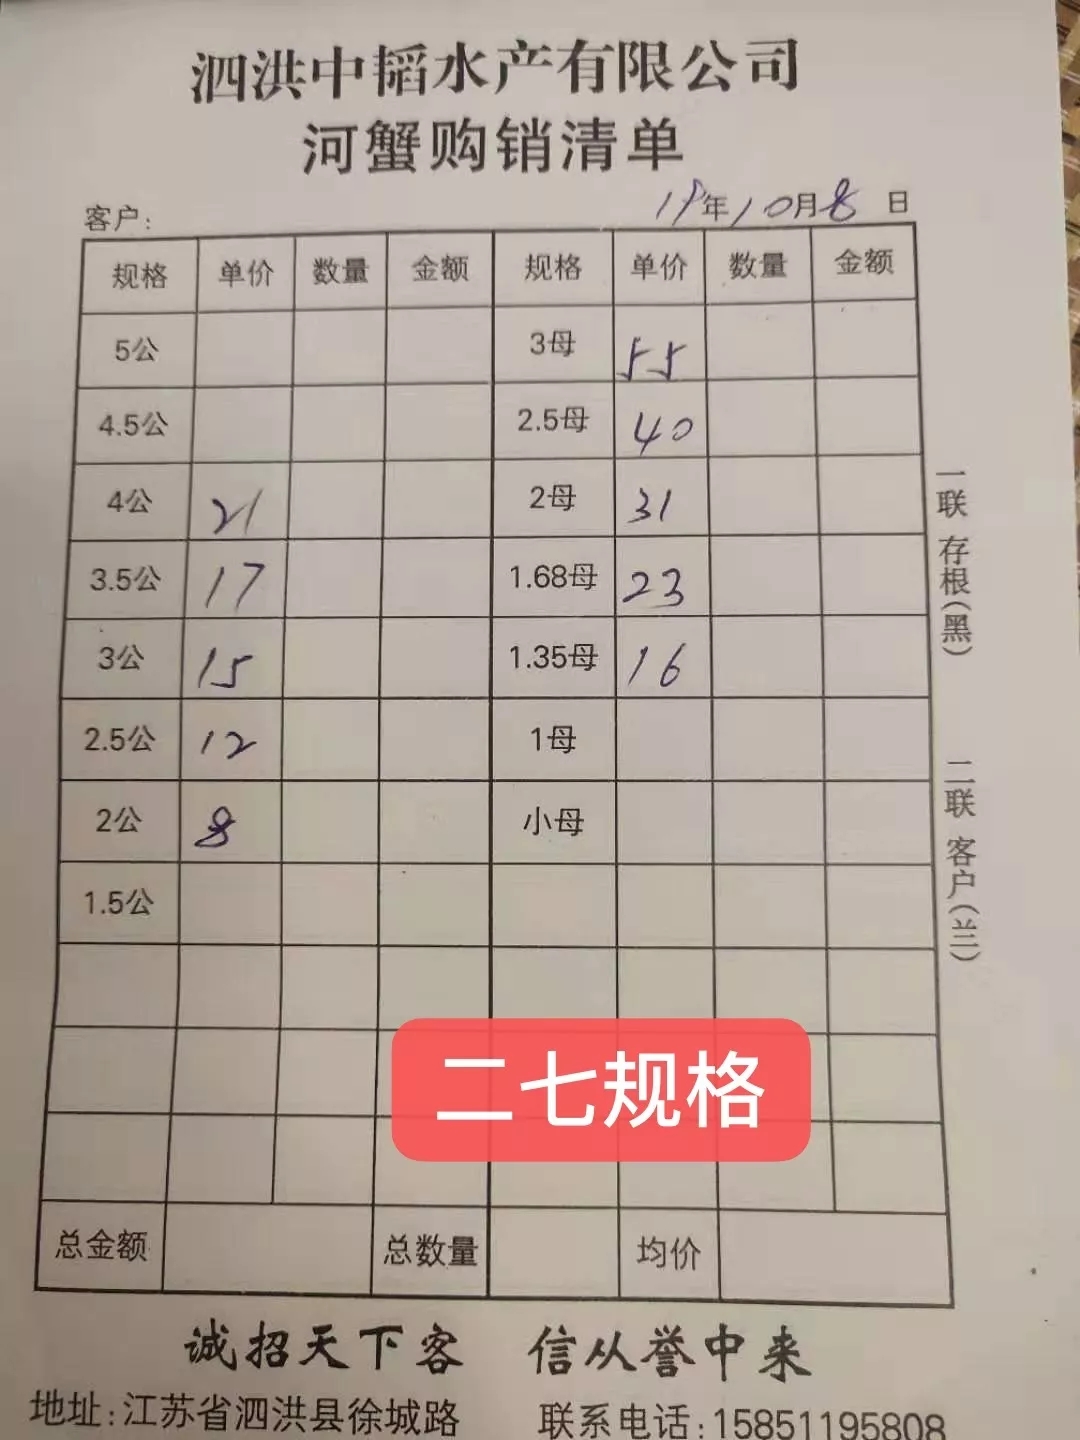 泗洪中韬水产有限公司
河蟹购销清单
客户: 19年10月8日
规格 单价 数量 金额 规格 单价 数量 金额
5公 3母 55
4.5公 2.5母 40
4公 21 2母 31
3.5公 17 1.68母 23
3公 15 1.35母 16
2.5公 12 1母
2公 8 小母
1.5公
二七规格
总金额 总数量 均价
诚招天下客 信从誉中来
地址:江苏省泗洪县徐城路 联系电话:15851195808
一联 存根(黑)
二联 客户(兰)